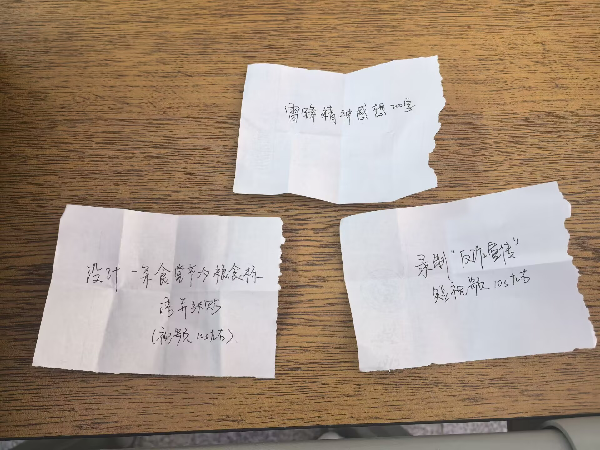 雷锋精神感想200字
设计一条食堂节约粮食标
语并张贴
(视频10s左右)
录制"反诈宣传"
短视频 10s左右